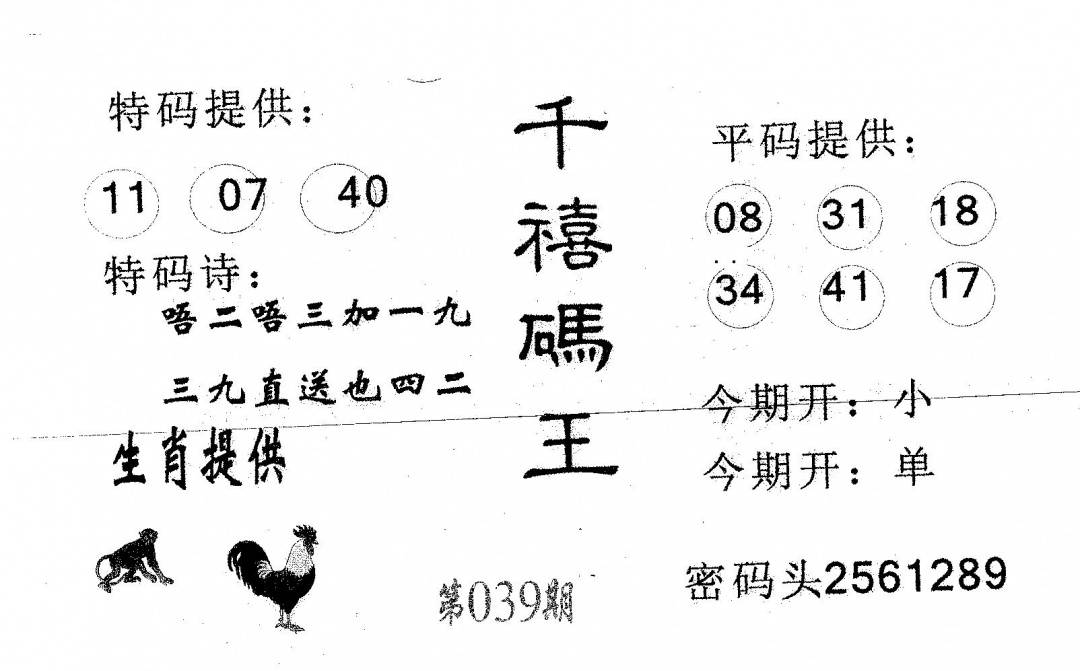 特码提供：
11 07 40
特码诗：
唔二唔三加一九
三九直送也四二
生肖提供
千禧碼王
第039期
平码提供：
08 31 18
34 41 17
今期开：小
今期开：单
密码头2561289